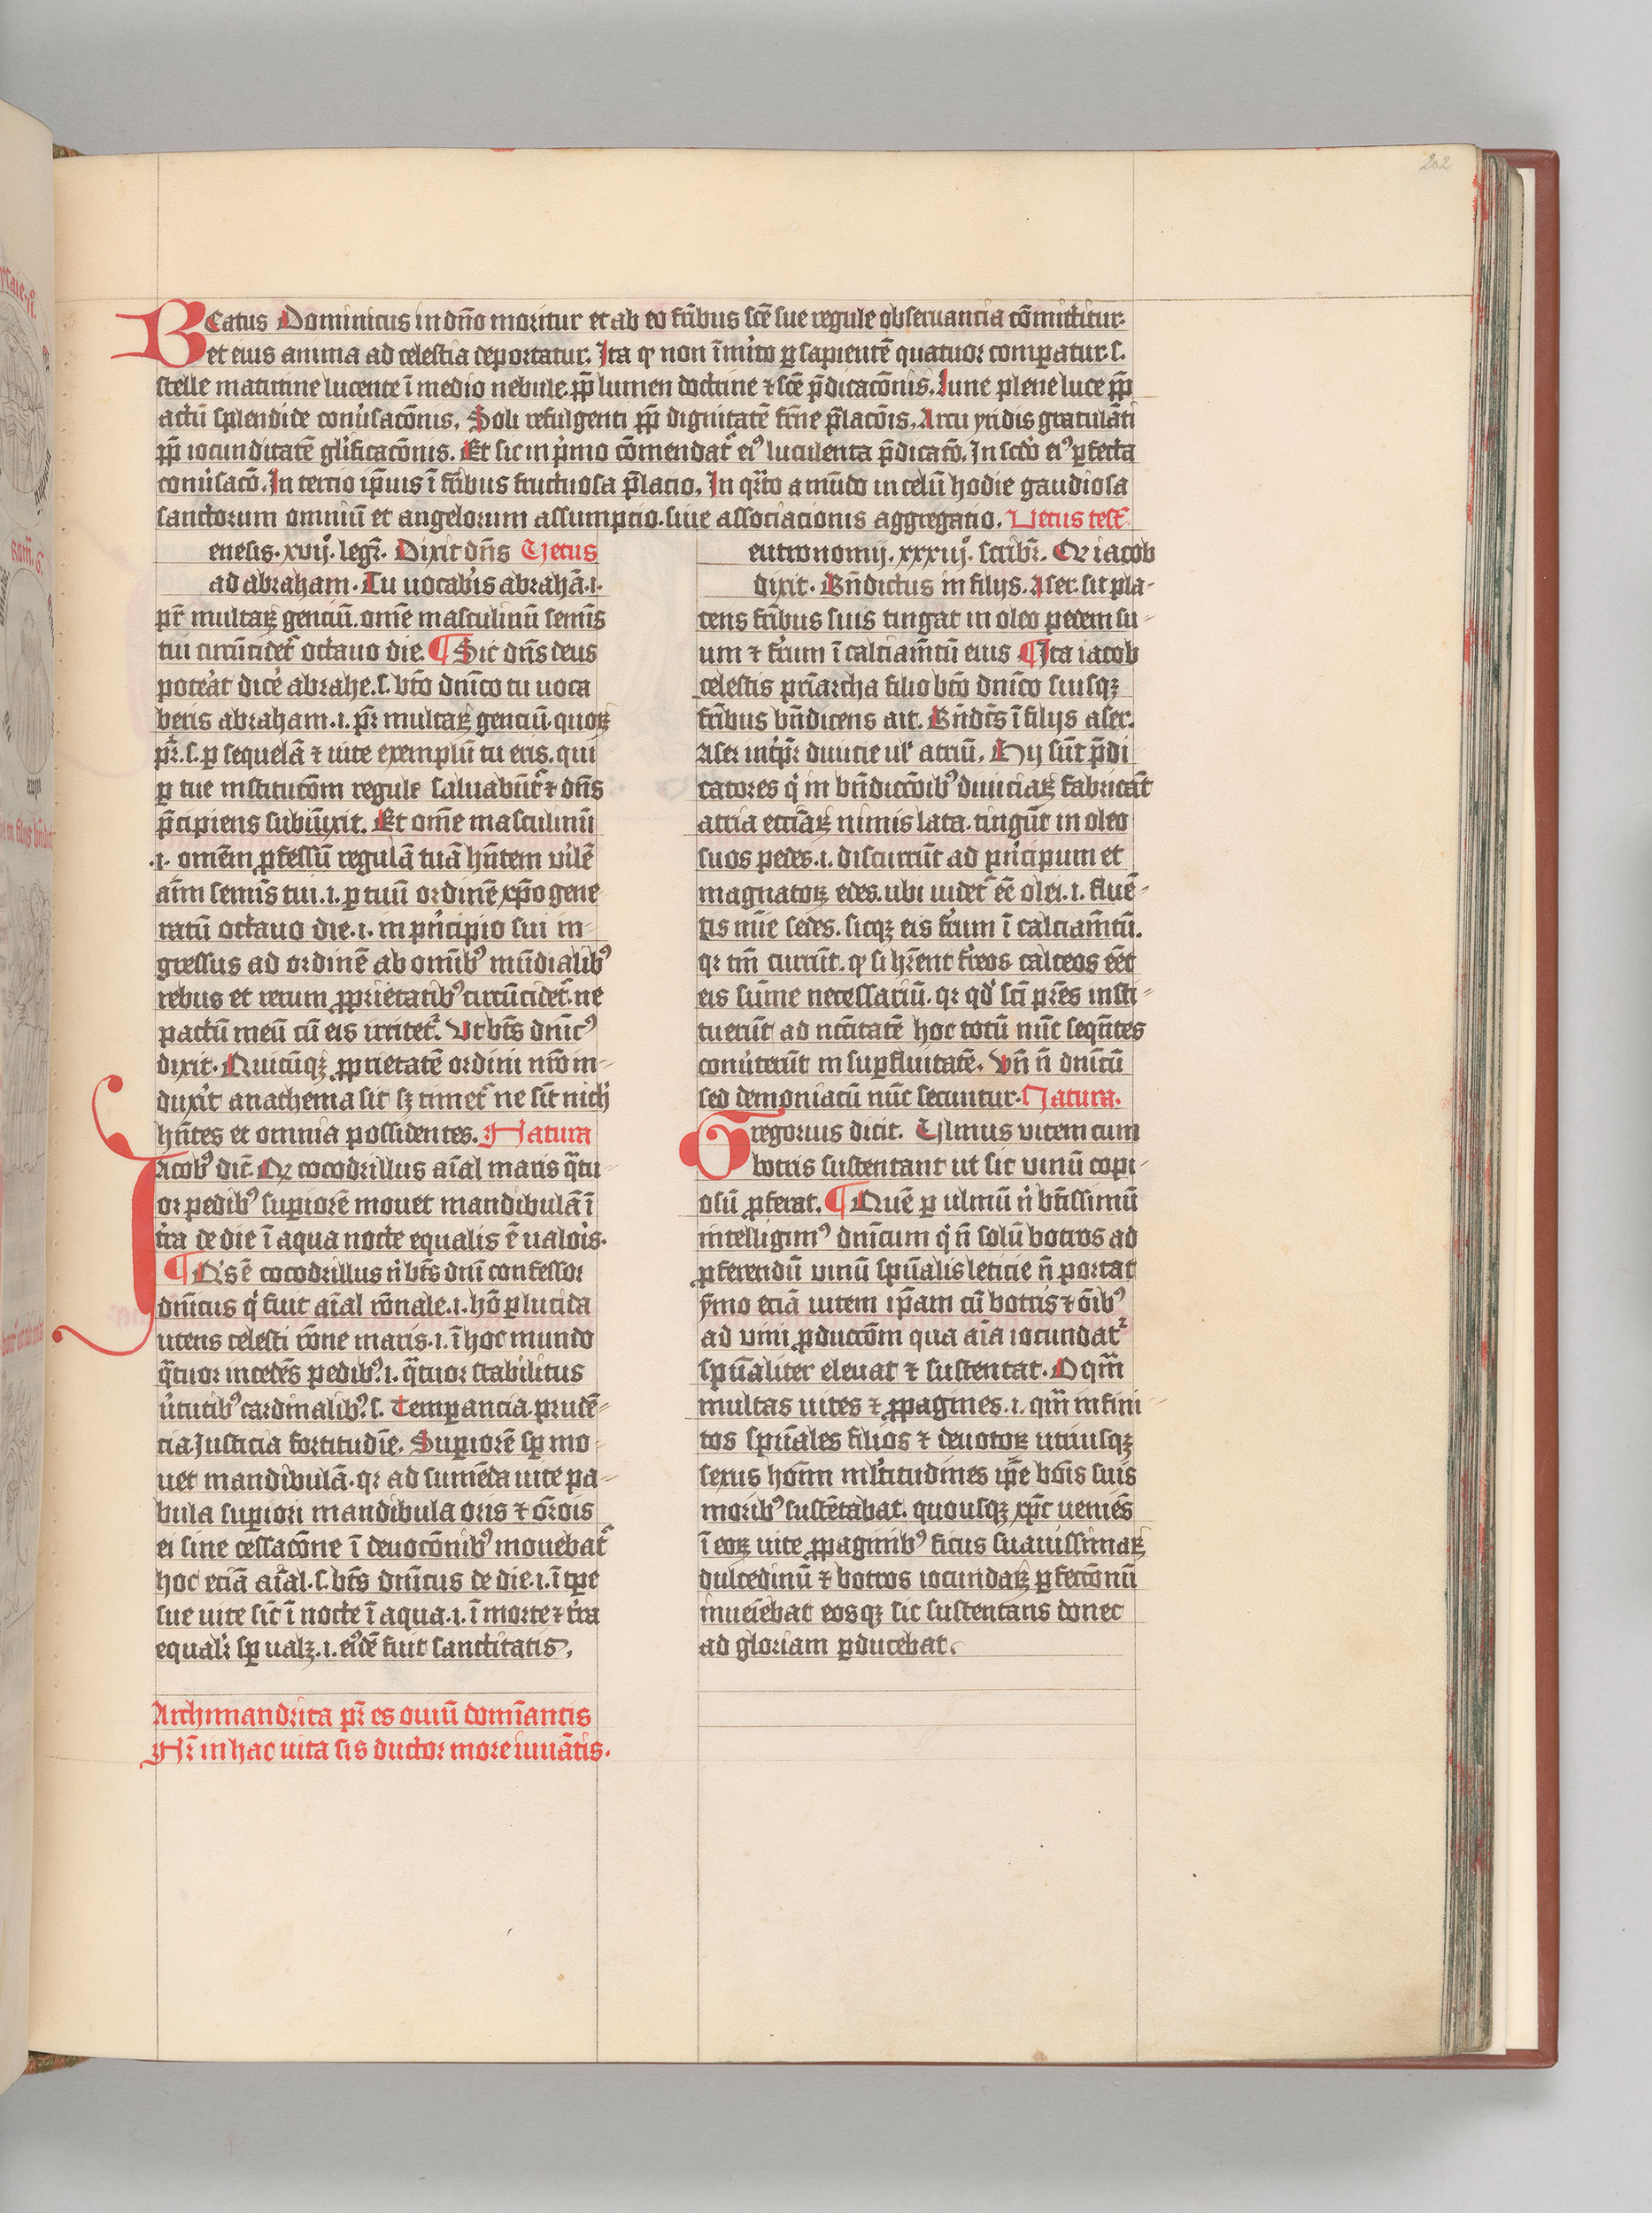 202
BEatus Dominicus in dn̄o moritur et ab eo fr̄ibus scē sue regule obseruancia cōmittitur.
et eius anima ad celestia deportatur. Ita qͥ non īmͥto ꝑ sapientē quatuor comparatur .s.
stelle matutine lucente ī medio nebule. ꝓp̄ lumen doctrine ⁊ scē p̄dicacōnis. Lune plene luce ꝓp̄
actū splendide conūsacōnis. Soli refulgenti ꝓp̄ dignitatē fr̄ne p̄lacōis. Arcu yridis gratulāti
ꝓp̄ iocunditatē gl̄ificacōnis. Et sic in pͥmo cōmendat᷑ eiꝰ luculenta p̄dicacō. In scd̄o eiꝰ ꝑfecta
conūsacō. In tercio ip̄ius ī fr̄ibus fructuosa p̄lacio. In qͣrto a mūdo in celū hodie gaudiosa
sanctorum omniū et angelorum assumptio. siue associacionis aggregatio. Uetus test̄.
enesis. xvij. legr̄. Dixit dn̄s Uetus
ad abraham. Tu uocab̓is abrahā .i.
pr̄ multaꝝ genciū. om̄e masculinū semīs
tui circūcidet᷑ octauo die. ¶ Sic dn̄s deus
potēat dicē abrahe .s. bt̄o dn̄ico tu uoca
beris abraham .i. pr̄ multaꝝ genciū. quoꝝ
pr̄ .s. ꝑ sequelā ⁊ uite exemplū tu eris. qui
ꝑ tue institucōm regule saluabūt᷑ ⁊ dn̄s
p̄cipiens subiūxit. Et om̄e masculinū
.i. omēm ꝓfessū regulā tuā hn̄tem uilē
aīm semīs tui .i. ꝑ tuū ordinē xp̄o gene
ratū octauo die .i. in pͥncipio sui in-
gressus ad ordinē ab omībꝰ mūdialibꝰ
rebus et rerum ꝓprietatibꝰ circūcidet᷑. ne
pactū meū cū eis irritet᷑. Vt bt̄s dn̄icꝰ
dixit. Quicūqꝫ ꝓprietatē ordini nr̄o in-
duxit̓ anathema sit sꝫ timet᷑ ne sīt nich̓
hn̄tes et omnia possidentes. Natura
Jacobꝰ dic̄. Qꝛ cocodrillus aīal maris qͣtu-
or pedibꝰ superiorē mouet mandibulā ī
tr̄a de die ī aqua nocte equalis ē ualoīs.
¶ Qͥs ē cocodrillus n̄ bt̄s dn̄i confessor
dn̄icus qͥ fuit aīal rōnale .i. hō ꝑ lucida
utens celesti rōne maris .i. ī hoc mundo
qͣtuor incedēs pedibꝰ .i. qͣtuor stabilitus
v̄tutibꝰ cardinalibꝰ .s. Temperancia. prudē-
cia. Justicia fortitudīe. Superiorē sp̄ mo-
uet mandibulā. qꝛ ad sumēda uite pa-
bula superiori mandibula oris ⁊ or̄ois
ei sine cessacōne ī deuocōnibꝰ mouebat᷑
hoc eciā aīal .s. bt̄s dn̄icus de die .i. ī tp̄e
sue uite sīc ī nocte ī aqua .i. ī morte ⁊ tr̄a
equalͥs sp̄ ualꝫ .i. eiꝰdē fuit sanctitatis.
Archimandrita pr̄ es ouiū domīantis
Nr̄ in hac uita sis ductor more iuuātis.
eutronomij. xxxiij. scribr̄. Qꝛ iacob
dixit. Bn̄dictus in filijs. Aser. sit pla-
cens fr̄ibus suis tingat in oleo pedem su-
um ⁊ fr̄um ī calciam̄tū eius ¶ Ita iacob
celestis pr̄iarcha filio bt̄o dn̄ico suisqꝫ
fr̄ibus bn̄dicens ait. Bn̄dc̄s ī filijs aser.
Aser int̓pr̄ diuicie ul̓ atriū. Hij sūt p̄di
catores qͥ in bn̄diccōibꝰ diuiciaꝝ fabricāt
atria ecciāꝝ nimis lata. tingūt in oleo
suos pedes .i. discurrūt ad pͥncipum et
magnatoꝝ edes. ubi uidet᷑ eē olei .i. fluē-
tis mīe sedes. sicqꝫ eis fr̄um ī calciam̄tū.
qꝛ tm̄ currūt. qͥ si hr̄ent fr̄eos calceos eēt
eis sūme necessariū. qꝛ qd̓ sc̄i pr̄es insti-
tuerūt ad nc̄citatē hoc totū nūc seqn̄tes
conūterūt in suꝑfluitatē. Vn̄ n̄ dn̄icū
sed demoniacū nūc secuntur. Natura.
Gregorius dicit. Ulmus vitem cum
botris sustentant ut sic vinū copi-
osū ꝓferat. ¶ Quē ꝑ ulmū n̄ bt̄issimū
intelligimꝰ dn̄icum qͥ n̄ solū botros ad
ꝓferendū vinū spūalis leticie n̄ portat
ymo eciā uitem ip̄am cū botris ⁊ oībꝰ
ad vini ꝓductōm qua aīa iocundat᷑
spūaliter eleuat ⁊ sustentat. O qm̄
multas uites ⁊ ꝓpagines .i. qm̄ infini-
tos spūales filios ⁊ deuotoꝝ utriusqꝫ
sexus hoīm ml̓titudines ip̄e v̓bis suis
moribꝰ sustētabat. quousqꝫ xp̄c ueniēs
ī eoꝝ uite ꝓpaginibꝰ ficus suauissimaꝝ
dulcedinū ⁊ botros iocundaꝝ ꝑfeccōnū
inueīebat eosqꝫ sic sustentans donec
ad gloriam ꝑducebat.